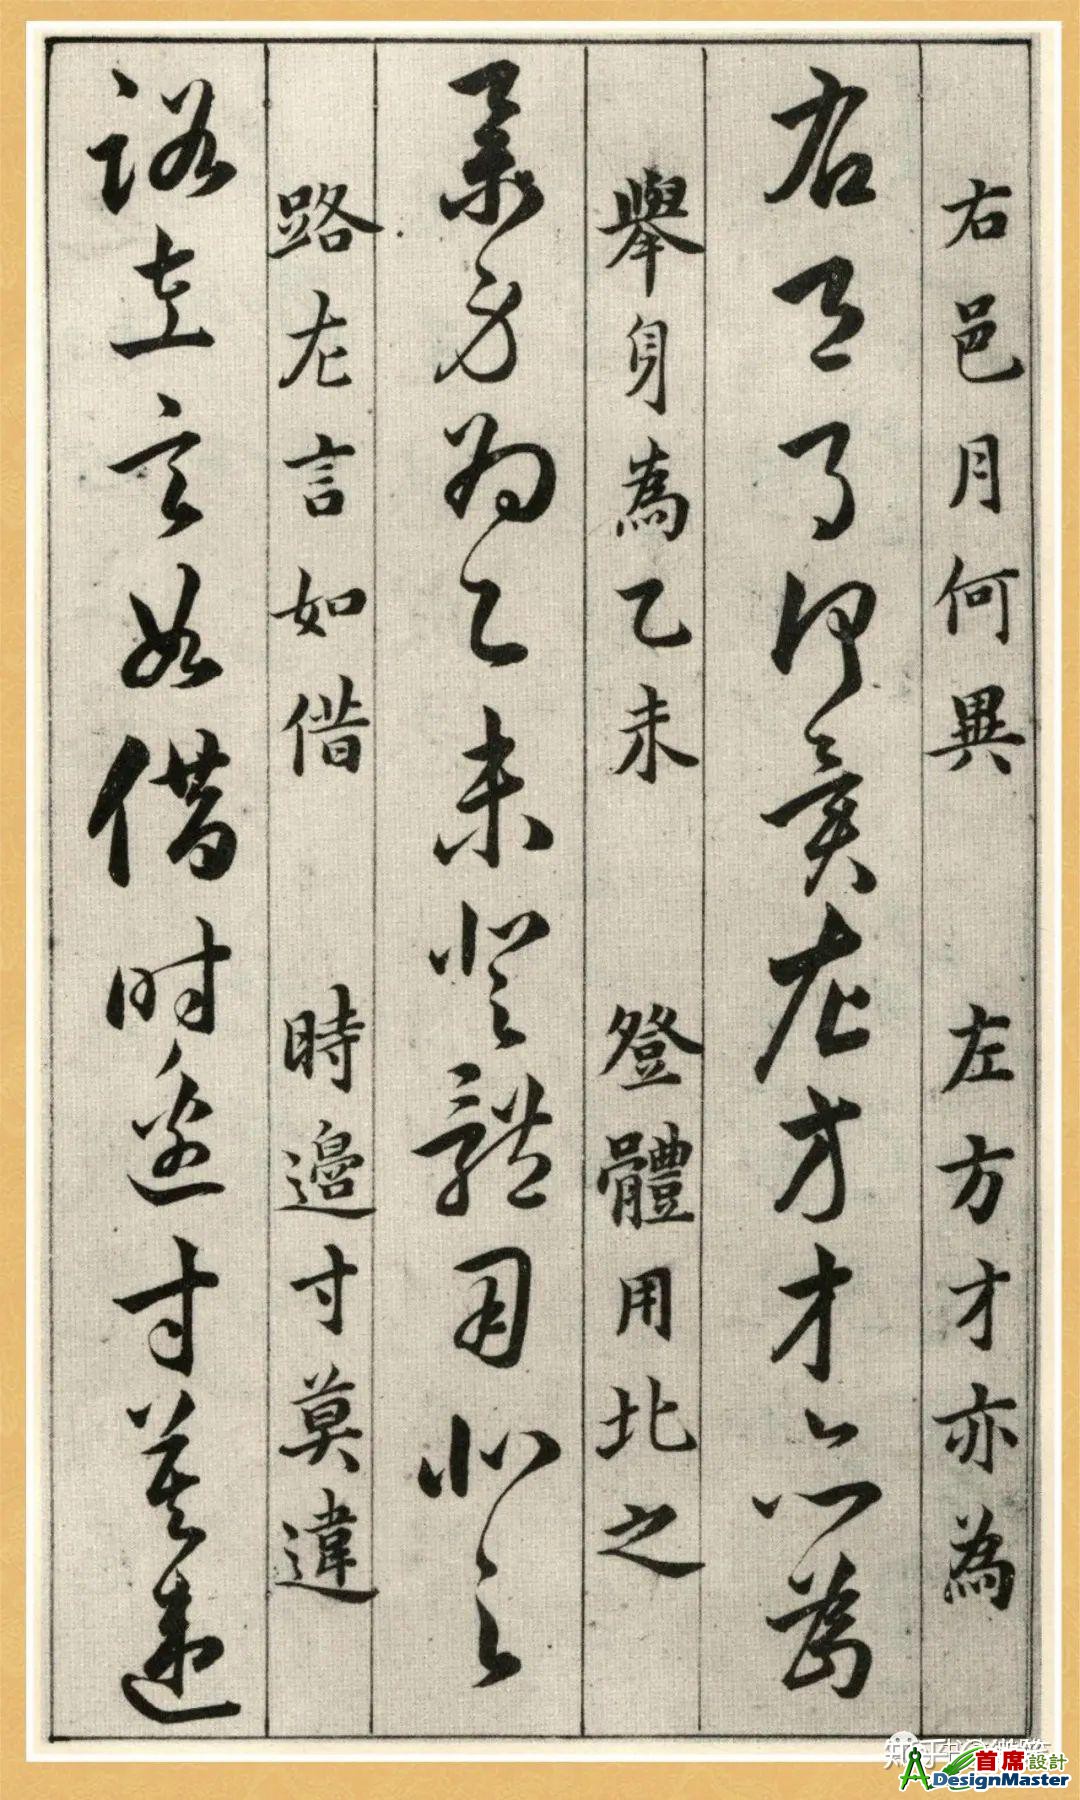 右邑月何異 左方才亦為
右邑月何異左方才亦為
舉身為乙未 登體用北之
舉身為乙未登體用北之
路左言如借 時邊寸莫違
路左言如借時邊寸莫違
知乎
首席設計
ADesignMaster